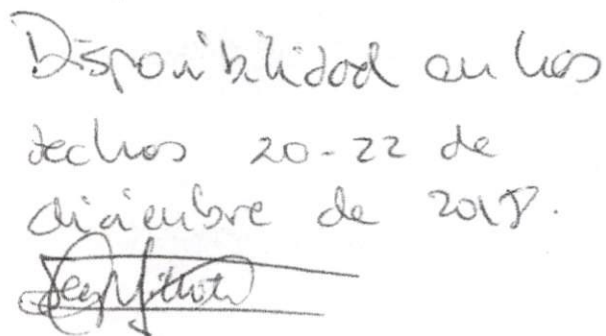 Disponibilidad en las
fechas 20-22 de
diciembre de 2018.